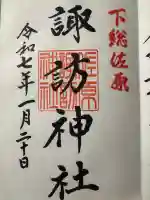 下総佐原
諏訪神社
令和七年一月二十日